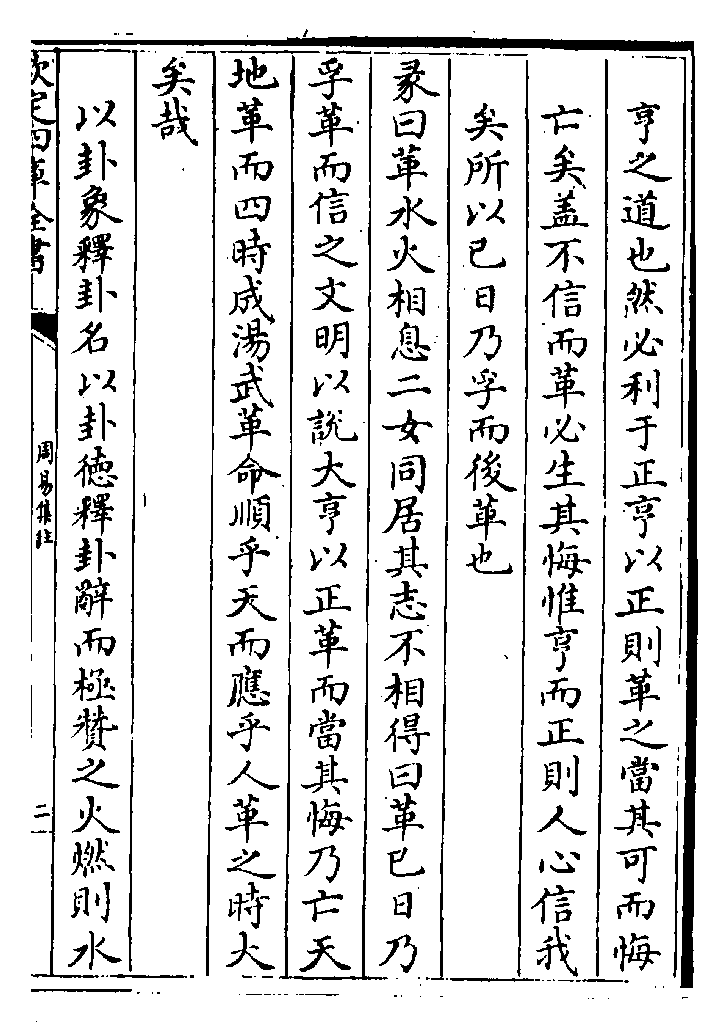 亨之道也然必利于正亨以正則革之當其可而悔
亡矣盖不信而革必生其悔惟亨而正則人心信我
矣所以已日乃孚而後革也
彖曰革水火相息二女同居其志不相得曰革已日乃
孚革而信之文明以說大亨以正革而當其悔乃亡天
地革而四時成湯武革命順乎天而應乎人革之時大
矣哉
以卦象釋卦名以卦徳釋卦辭而極贊之火燃則水
欽定四庫全書
周易集註
二